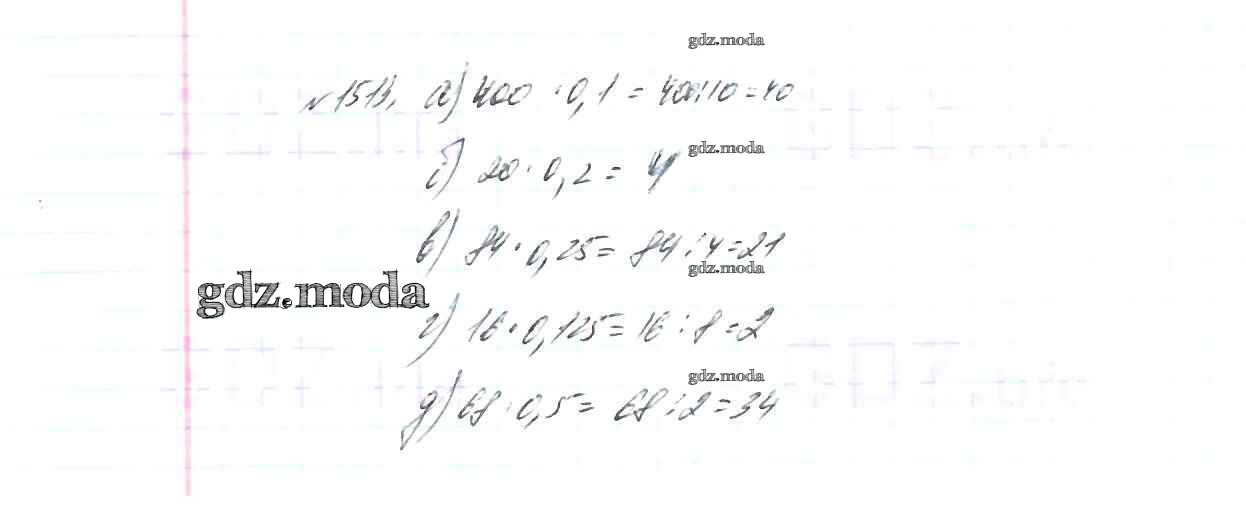 gdz.moda
№1513. а) 400 · 0,1 = 400:10=40
gdz.moda
б) 20 · 0,2 = 4
в) 84 · 0,25 = 84:4=21
gdz.moda
gdz.moda
г) 16 · 0,125 = 16:8=2
gdz.moda
д) 68 · 0,5 = 68:2=34